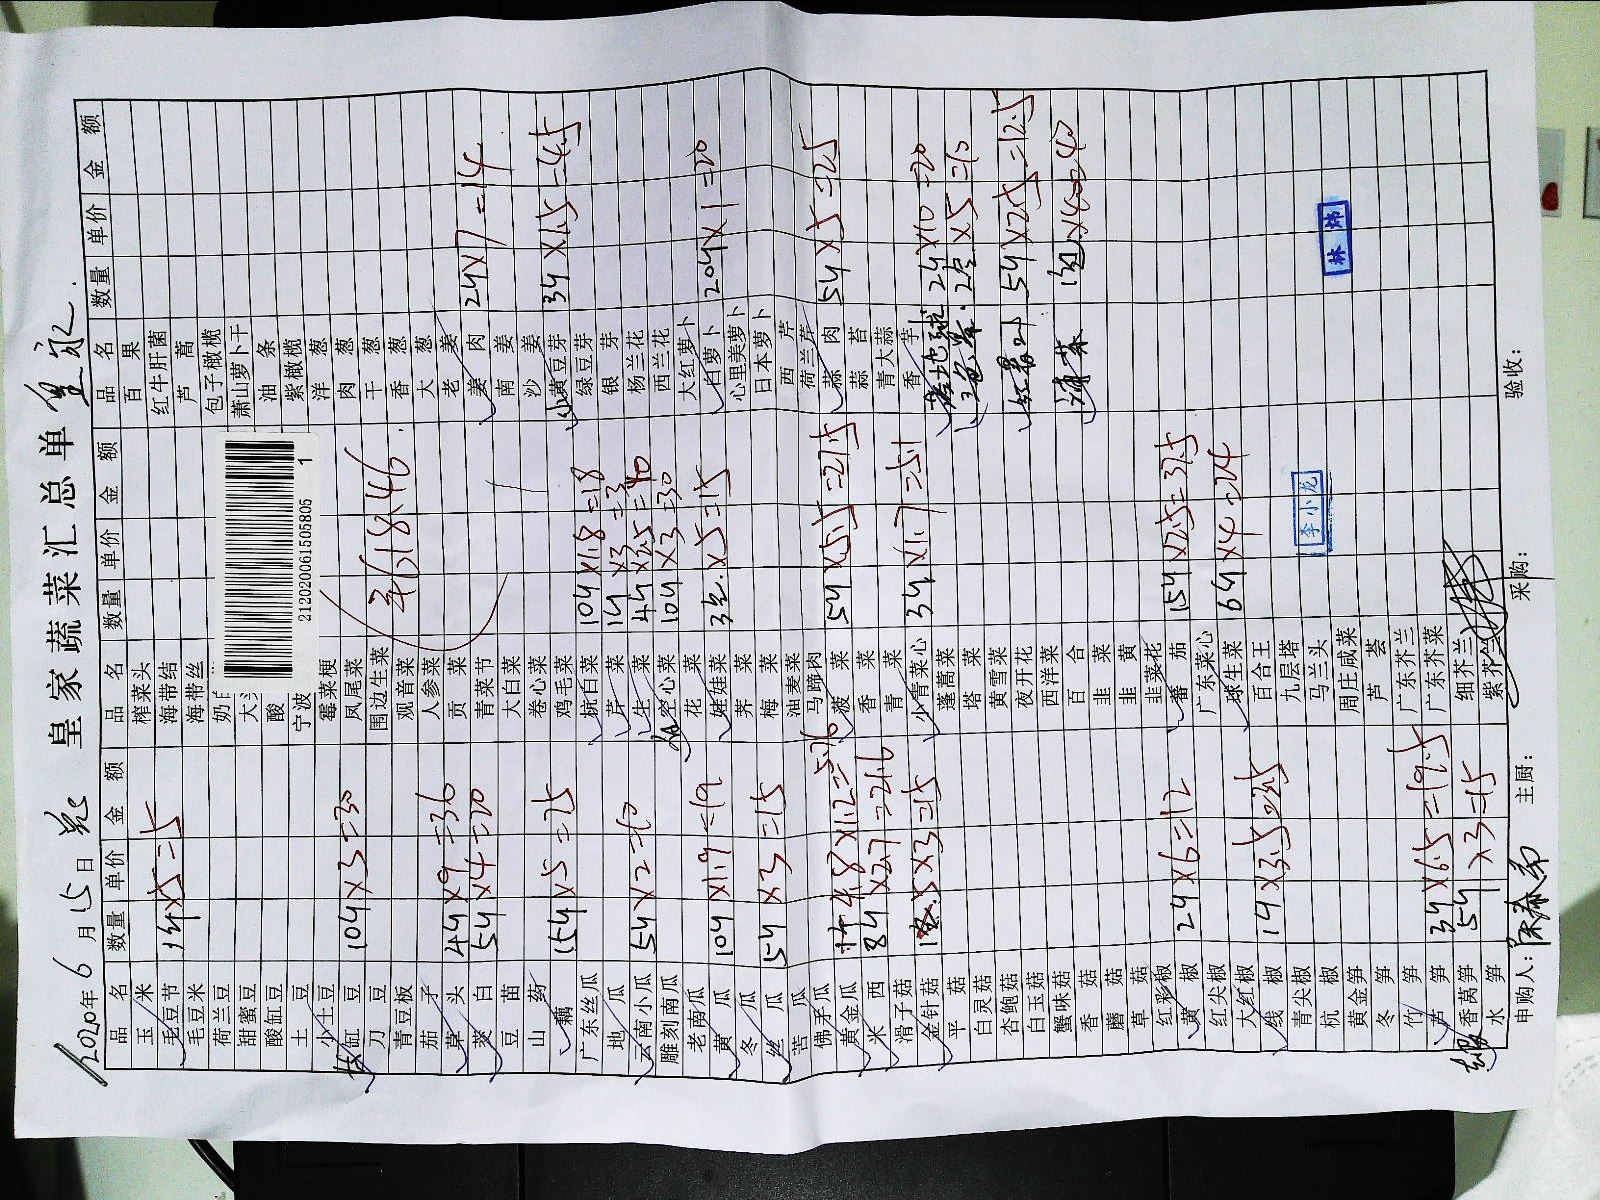 2020年6月15日 皇家蔬菜汇总单
品名 数量 单价 金额 品名 数量 单价 金额 品名 数量 单价 金额
玉米 榨菜头 百果
毛豆节 1斤×15=15 海带结 红牛肝菌
毛豆米 海带丝 芦蒿
荷兰豆 包子橄榄
甜蜜豆 萧山萝卜干
酸缸豆 酸 油条
土豆 宁波 紫橄榄
小土豆 霉菜梗 洋葱
缸豆 10斤×3=30 凤尾菜 肉葱
刀豆 围边生菜 干葱
青豆板 观音菜 香葱
茄子 人参菜 大葱
草头 4斤×9=36 贡菜 老姜
茭白 5斤×4=20 青菜节 姜肉 2斤×7=14
豆苗 大白菜 南姜
山药 卷心菜 沙姜
藕 15斤×5=75 鸡毛菜 黄豆芽 3斤×1.5=4.5
广东丝瓜 杭白菜 10斤×1.8=18 绿豆芽
地瓜 芹菜 1斤×3=3 银芽
云南小瓜 5斤×2=10 生菜 4斤×2.5=10 杨兰花
雕刻南瓜 空心菜 10斤×3=30 西兰花
老南瓜 花菜 大红萝卜
黄瓜 10斤×1.9=19 娃娃菜 3包×5=15 白萝卜 20斤×1=20
冬瓜 荠菜 心里美萝卜
丝瓜 5斤×3=15 梅菜 日本萝卜
苦瓜 油麦菜 西芹
佛矛瓜 马蹄肉 荷兰芹
黄金瓜 4.8×1.2=5.76 菠菜 5斤×5.5=27.5 蒜肉 5斤×5=25
米西 8斤×2.7=21.6 香菜 蒜苔
滑子菇 青菜 青大蒜
金针菇 5×3=15 小青菜心 3斤×1.7=5.1 香芋
平菇 蓬蒿菜 2斤×10=20
白灵菇 塔菜 2×5=10
杏鲍菇 黄雪菜
白玉菇 夜开花 5斤×2.5=12.5
蟹味菇 西洋菜
香菇 百合 蒲菜
蘑菇 韭菜
草菇 韭黄
红彩椒 韭菜花
黄椒 2斤×6=12 番茄 15斤×2.5=37.5
红尖椒 广东菜心
大红椒 球生菜 6斤×4=24
线椒 1斤×3.5=3.5 百合王
青尖椒 九层塔
杭椒 马兰头
黄金笋 周庄咸菜
冬笋 芦荟
竹笋 广东芥兰
芦笋 3斤×6.5=19.5 广东芥菜
香莴笋 5斤×3=15 细芥兰
水笋 紫芥兰
212020061505805 1
618.46
李小龙
林炜
申购人： 主厨： 采购： 验收：